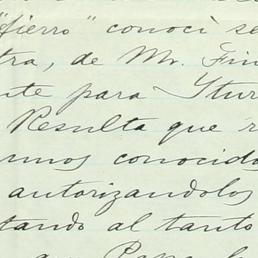 "fierro" conocì se
tra, de Mr. Fin
nte para Ytur
Resulta que r
mos conocido
autorizandolos
tando al tanto